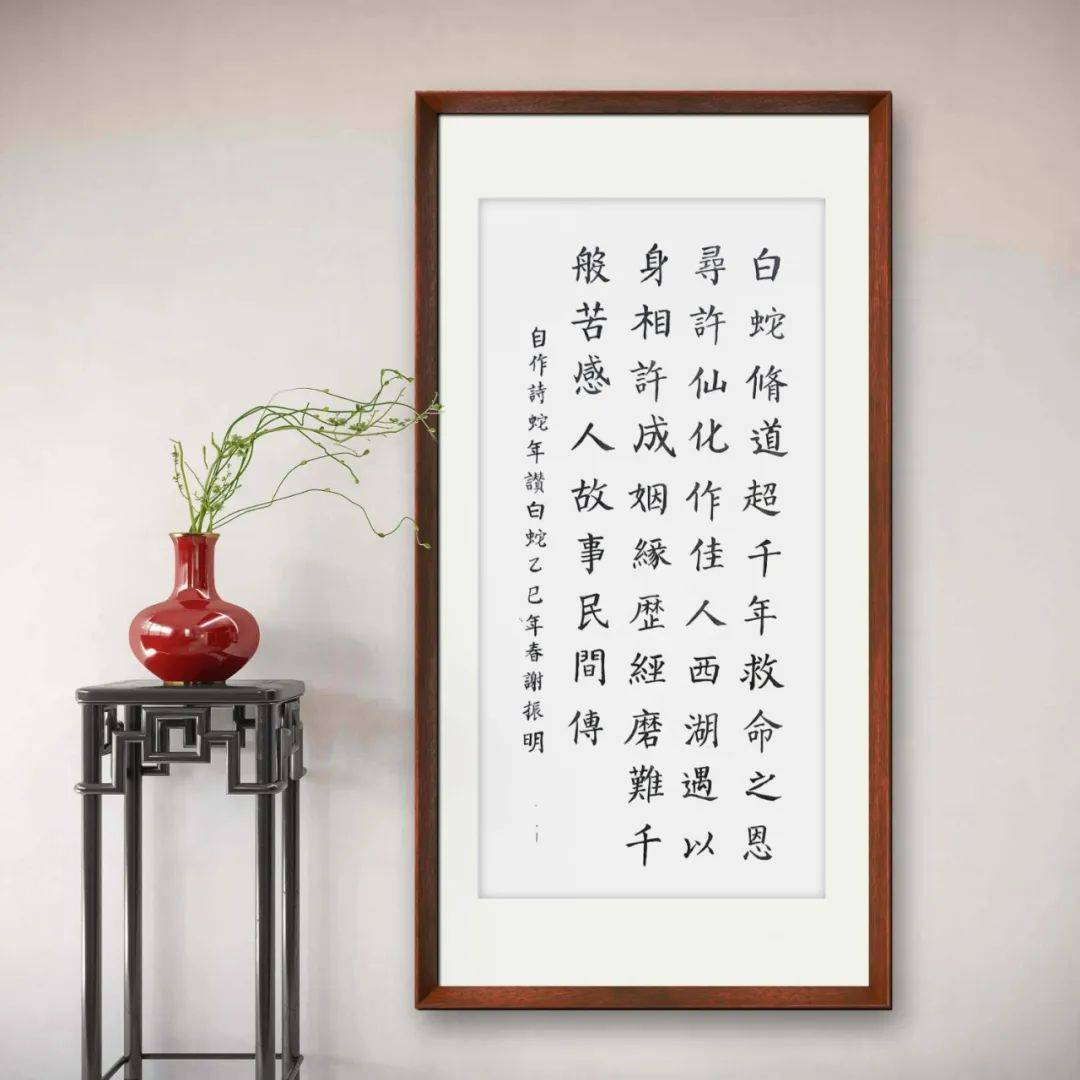 白蛇脩道超千年救命之恩
尋許仙化作佳人西湖遇以
身相許成姻緣歷經磨難千
般苦感人故事民間傳
自作詩蛇年讚白蛇乙巳年春謝振明